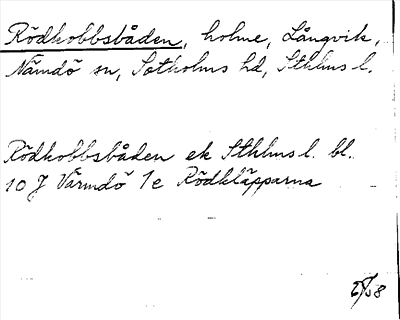 Rödkobbsbåden, holme, Långvik,
Nämdö sn, Sotholms hd, Sthlms l.
Rödkobbsbåden ek Sthlms l. bl.
10 J Värmdö 1e Rödkläpparna